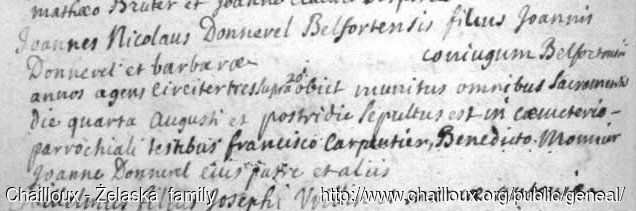 mathæo Bruter et Joanne
Joannes Nicolaus Donnevel Belfortensis filius Joannis
Donnevel et barbaræ coniugum Belfort
annos agens circiter tres supra 20 obiit munitus omnibus Sacramentis
die quarta Augusti et postridie sepultus est in cæmeterio
parrochiali testibus francisco Carpentier, Benedicto Monnier
Joanne Donnevel eius patre et aliis
filius Josephi
Chailloux - Żelaska family http://www.chailloux.org/public/geneal/